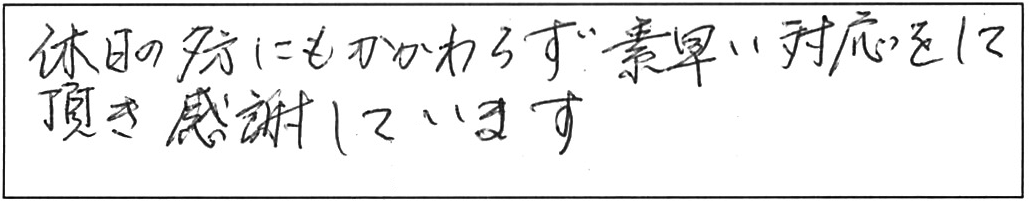 休日の夕方にもかかわらず素早い対応をして
頂き感謝しています